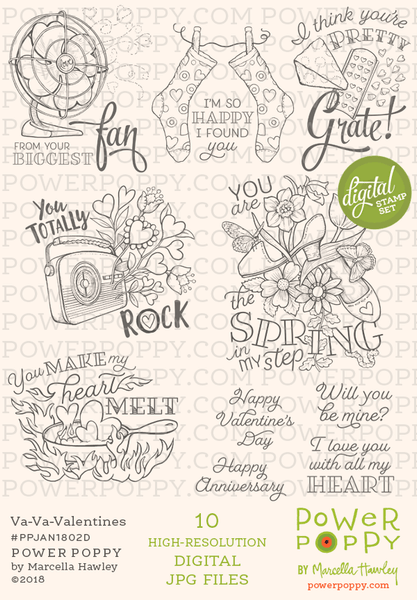 POWERPOPPY.COM
FROM YOUR
BIGGEST fan
I'M SO
HAPPY
I FOUND
you
I think you're
PRETTY
Grate!
digital
STAMP
SET
You
TOTALLY
ROCK
YOU
are
the
SPRING
in
MY step
You MAKE my
heart
MELT
Happy
Valentine's
Day
Happy
Anniversary
Will you
be mine?
I love you
with all my
HEART
Va-Va-Valentines
#PPJAN1802D
POWER POPPY
by Marcella Hawley
©2018
10
HIGH-RESOLUTION
DIGITAL
JPG FILES
POWER
POPPY
BY Marcella Hawley
powerpoppy.com